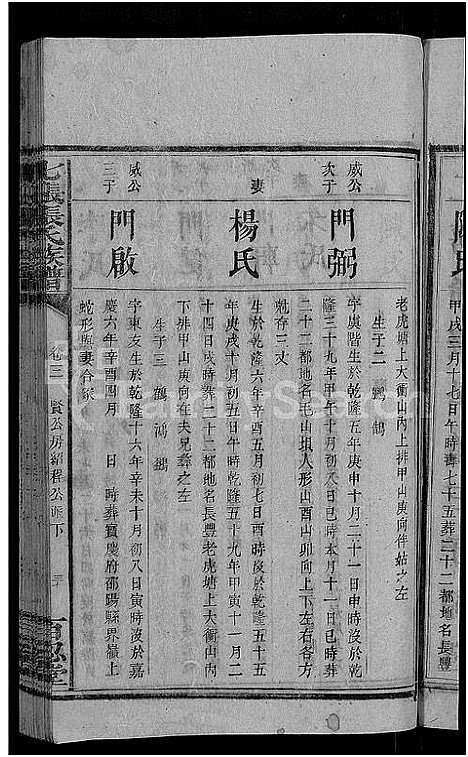 甲戌三月十七日午時壽七十五葬二十二都地名長豐
老虎塘上大衝山內上排甲山庚向伴姑之左
生子二 鶚 鵠
威公
次子
門弼
字庚階生於乾隆五年庚申十月二十一日申時沒於乾
隆三十九年甲午十月初八日巳時本月十一日巳時葬
二十二都地名毛山垻人形山酉山卯向上下左右各方
兢存三丈
妻
楊氏
生於乾隆六年辛酉五月初七日酉時沒於乾隆五十五
年庚戌十月初五日午時乾隆五十九年甲寅十一月二
十四日戌時葬二十二都地名長豐老虎塘上大衝山內
下排甲山庚向在夫兄彝之左
生子三 鶴 鴻
威公
三子
門啟
字東友生於乾隆十六年辛未十月初八日寅時沒於嘉
慶六年辛酉四月 日 時葬寶慶府邵陽縣界嶺上
蛇形與妻合冢
張氏族譜
卷三 賢公房紹程公派下
百忍堂